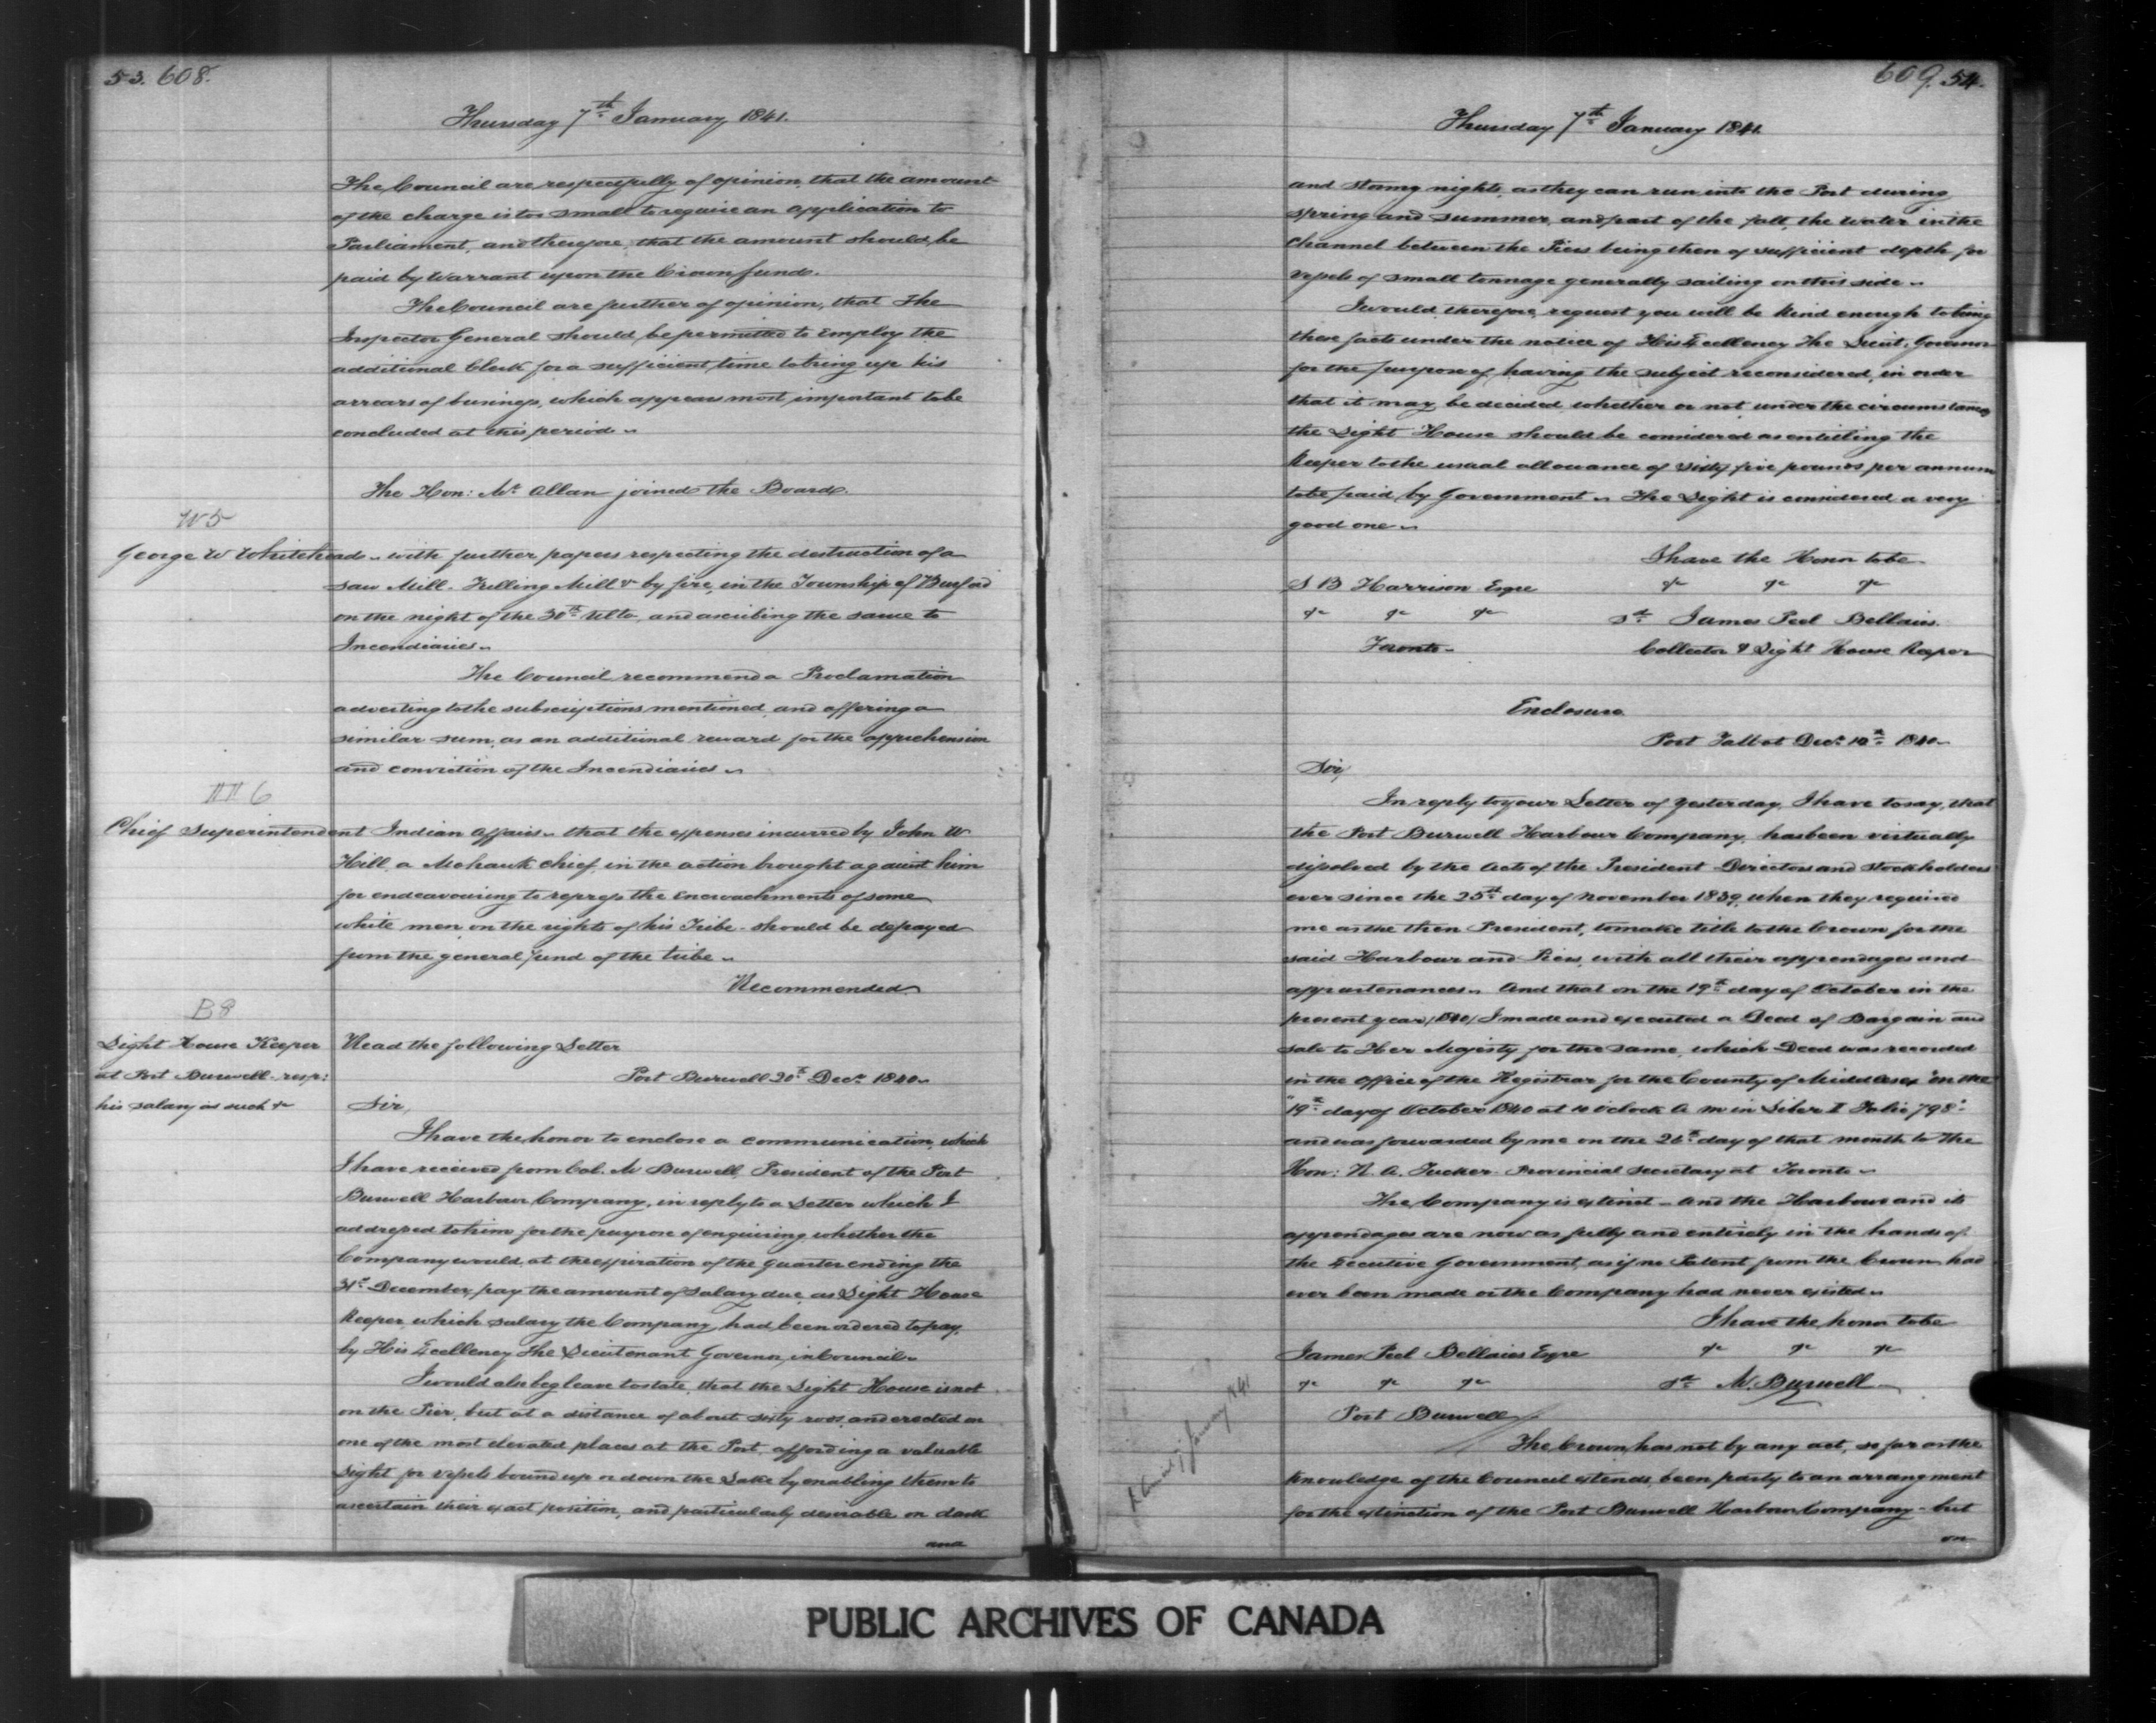 53. 608.
Thursday 7th January 1841.
The Council are respectfully of opinion, that the amount
of the charge is too small to require an application to
Parliament, and therefore, that the amount should be
paid by Warrant upon the Crown funds.
The Council are further of opinion, that the
Inspector General should be permitted to employ the
additional Clerk for a sufficient time to bring up his
arrears of business, which appears most important to be
concluded at this period.
The Hon: Mr Allan joined the Board.
W 5
George W Whitehead. with further papers respecting the destruction of a
Saw Mill. Fulling Mill &c by fire, in the Township of Burford
on the night of the 30th Ulto, and ascribing the same to
Incendiaries.
The Council recommend a Proclamation
adverting to the subscriptions mentioned, and offering a
similar sum, as an additional reward for the apprehension
and conviction of the Incendiaries.
6
Chief Superintendent Indian Affairs. that the expenses incurred by John W
Hill, a Mohawk Chief, in the action brought against him
for endeavouring to repress the Encroachments of some
white men on the rights of his Tribe - should be defrayed
from the general fund of the tribe.
Recommended.
B 8
Light House Keeper
at Port Burwell. resp:
his salary as such &c
Read the following Letter
Port Burwell 20th Decr 1840.
Sir,
I have the honor to enclose a communication, which
I have received from Col. M Burwell, President of the Port
Burwell Harbour Company, in reply to a Letter which I
addressed to him for the purpose of enquiring whether the
Company would, at the expiration of the quarter ending the
31st December, pay the amount of salary due, as Light House
Keeper, which salary the Company had been ordered to pay,
by His Excellency The Lieutenant Governor in Council.
I would also beg leave to state, that the Light House is not
on the Pier, but at a distance of about sixty rods, and erected on
one of the most elevated places at the Port, affording a valuable
Light for vessels bound up or down the Lake by enabling them to
ascertain their exact position, and particularly desirable on dark
and
609. 54.
Thursday 7th January 1841.
and stormy nights, as they can run into the Port during
spring and summer, and part of the fall, the water in the
Channel between the Piers being then of sufficient depth for
vessels of small tonnage generally sailing on this side.
I would, therefore, request you will be kind enough to bring
these facts under the notice of His Excellency The Lieut. Governor
for the purpose of having the subject reconsidered, in order
that it may be decided whether or not, under the circumstances
the Light House should be considered as entitling the
Keeper to the usual allowance of sixty five pounds per annum
to be paid by Government. The Light is considered a very
good one.
I have the Honor to be
S B Harrison Esqre &c &c &c
&c &c &c sd James Peel Bellairs.
Toronto. Collector & Light House Keeper
Enclosure.
Port Talbot Decr 10th 1840.
Sir,
In reply to your Letter of yesterday, I have to say, that
the Port Burwell Harbour Company, has been virtually
dissolved by the Acts of the President Directors and Stockholders
ever since the 25th day of November 1839, when they required
me as the then President, to make title to the Crown for the
said Harbour and Piers, with all their appendages and
appurtenances. And that on the 19th day of October in the
present year, (1840) I made and executed a Deed of Bargain and
sale to Her Majesty for the same, which Deed was recorded
in the Office of the Registrar for the County of Middlesex "on the
"19th day of October 1840 at 10 o'clock A M in Liber I Folio 798"
and was forwarded by me on the 26th day of that month to the
Hon: R. A. Tucker. Provincial Secretary at Toronto.
The Company is extinct - and the Harbour and its
appendages are now as fully and entirely in the hands of
the Executive Government, as if no Patent from the Crown had
ever been made or the Company had never existed.
I have the honor to be
James Peel Bellairs Esqre &c &c &c
&c &c &c sd M. Burwell
Port Burwell
The Crown has not by any act, so far as the
knowledge of the Council extends, been party to an arrangment
for the extinction of the Port Burwell Harbour Company - but
on
January 1841
PUBLIC ARCHIVES OF CANADA